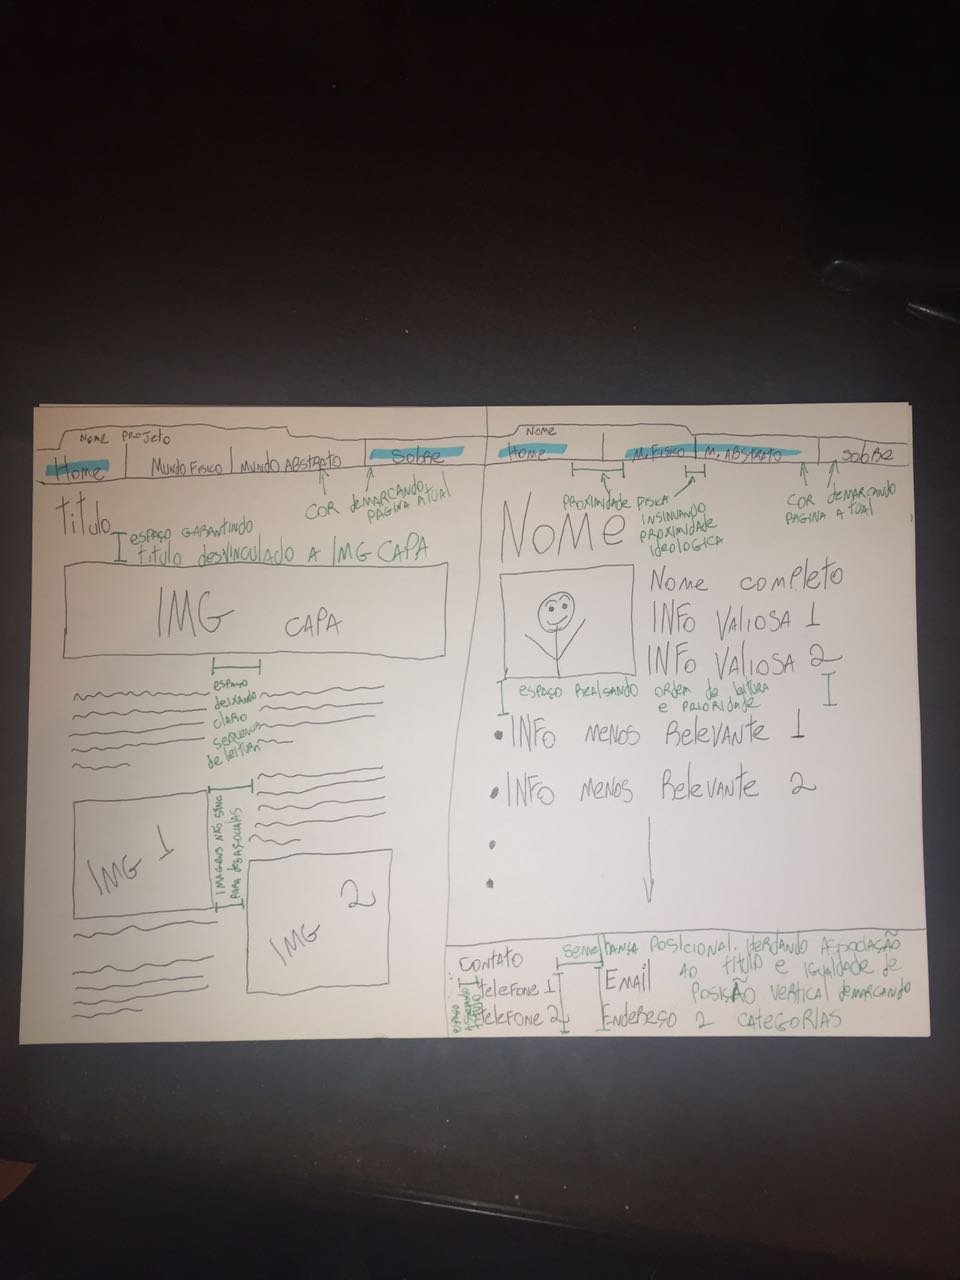 Nome Projeto
Home
Mundo Fisico
Mundo Abstrato
Sobre
COR demarcando
pagina atual
titulo
espaço garantindo
titulo desvinculado a IMG CAPA
IMG CAPA
espaço
deixando
claro
sequencia
de leitura
IMG 1
IMAGENS NÃO SINC
PARA DESASSOCIALAS
IMG 2
Nome
Home
M. Fisico
M. Abstrato
Sobre
Proximidade Fisica
insinuando
proximidade
ideologica
COR demarcando
pagina atual
Nome
Nome completo
INFO Valiosa 1
INFO Valiosa 2
espaço realsando ordem de leitura
e prioridade
INFO menos Relevante 1
INFO menos Relevante 2
Contato
telefone 1
telefone 2
espaço
Email
Endereço
semelhança posicional, herdando associação
ao titulo e igualdade de
posição vertical demarcando
2 categorias